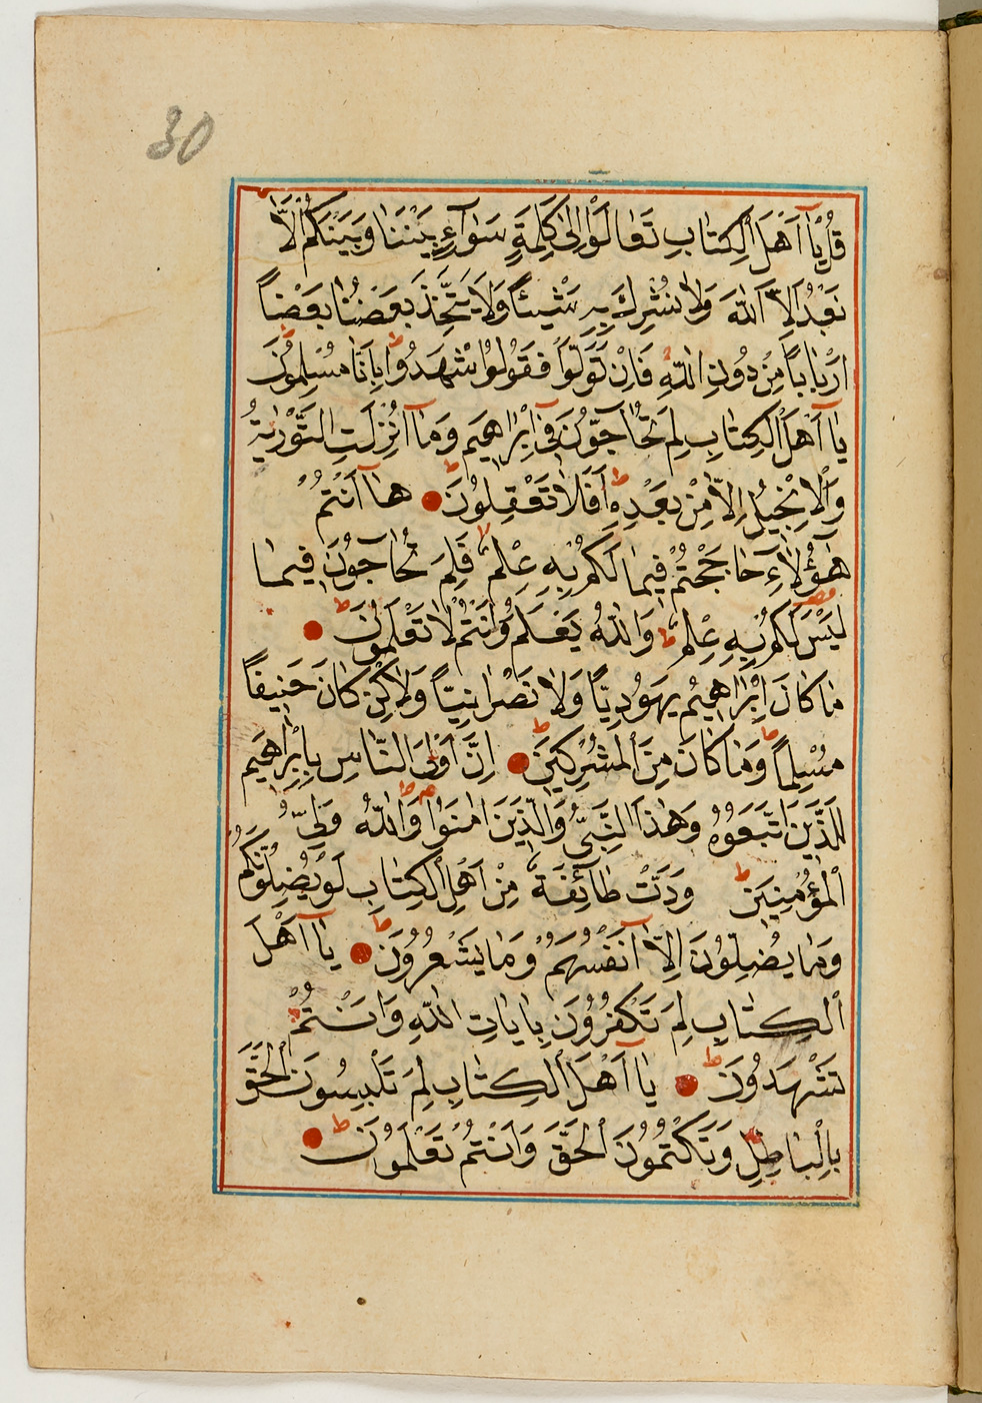 30
قُلْ يَٓا اَهْلَ الْكِتَابِ تَعَالَوْا اِلٰى كَلِمَةٍ سَوَٓاءٍ بَيْنَنَا وَبَيْنَكُمْ اَلَّا
نَعْبُدَ اِلَّا اللّٰهَ وَلَا نُشْرِكَ بِهِ شَيْئًا وَلَا يَتَّخِذَ بَعْضُنَا بَعْضًا
اَرْبَابًا مِنْ دُونِ اللّٰهِ فَاِنْ تَوَلَّوْا فَقُولُوا اشْهَدُوا بِاَنَّا مُسْلِمُونَ
يَٓا اَهْلَ الْكِتَابِ لِمَ تُحَٓاجُّونَ فِى اِبْرٰاهِيمَ وَمَٓا اُنْزِلَتِ التَّوْرٰيةُ
وَالْاِنْجِيلُ اِلَّا مِنْ بَعْدِهِ ط اَفَلَا تَعْقِلُونَ ط هَٓا اَنْتُمْ
هٰٓؤُلَٓاءِ حَاجَجْتُمْ فِيمَا لَكُمْ بِهِ عِلْمٌ لا فَلِمَ تُحَاجُّونَ فِيمَا
لَيْسَ لَكُمْ بِهِ عِلْمٌ ط وَاللّٰهُ يَعْلَمُ وَاَنْتُمْ لَا تَعْلَمُونَ ط
مَا كَانَ اِبْرٰاهِيمُ يَهُودِيًّا وَلَا نَصْرَانِيًّا وَلَاكِنْ كَانَ حَنِيفًا
مُسْلِمًا ط وَمَا كَانَ مِنَ الْمُشْرِكِينَ ط اِنَّ اَوْلَى النَّاسِ بِاِبْرٰاهِيمَ
لَلَّذِينَ اتَّبَعُوهُ وَهٰذَا النَّبِىُّ وَالَّذِينَ اٰمَنُوا ط وَاللّٰهُ وَلِىُّ
الْمُؤْمِنِينَ ط وَدَّتْ طَٓائِفَةٌ مِنْ اَهْلِ الْكِتَابِ لَوْ يُضِلُّونَكُمْ
وَمَا يُضِلُّونَ اِلَّٓا اَنْفُسَهُمْ وَمَا يَشْعُرُونَ ط يَٓا اَهْلَ
الْكِتَابِ لِمَ تَكْفُرُونَ بِاٰيَاتِ اللّٰهِ وَاَنْتُمْ
تَشْهَدُونَ ط يَٓا اَهْلَ الْكِتَابِ لِمَ تَلْبِسُونَ الْحَقَّ
بِالْبَاطِلِ وَتَكْتُمُونَ الْحَقَّ وَاَنْتُمْ تَعْلَمُونَ ط